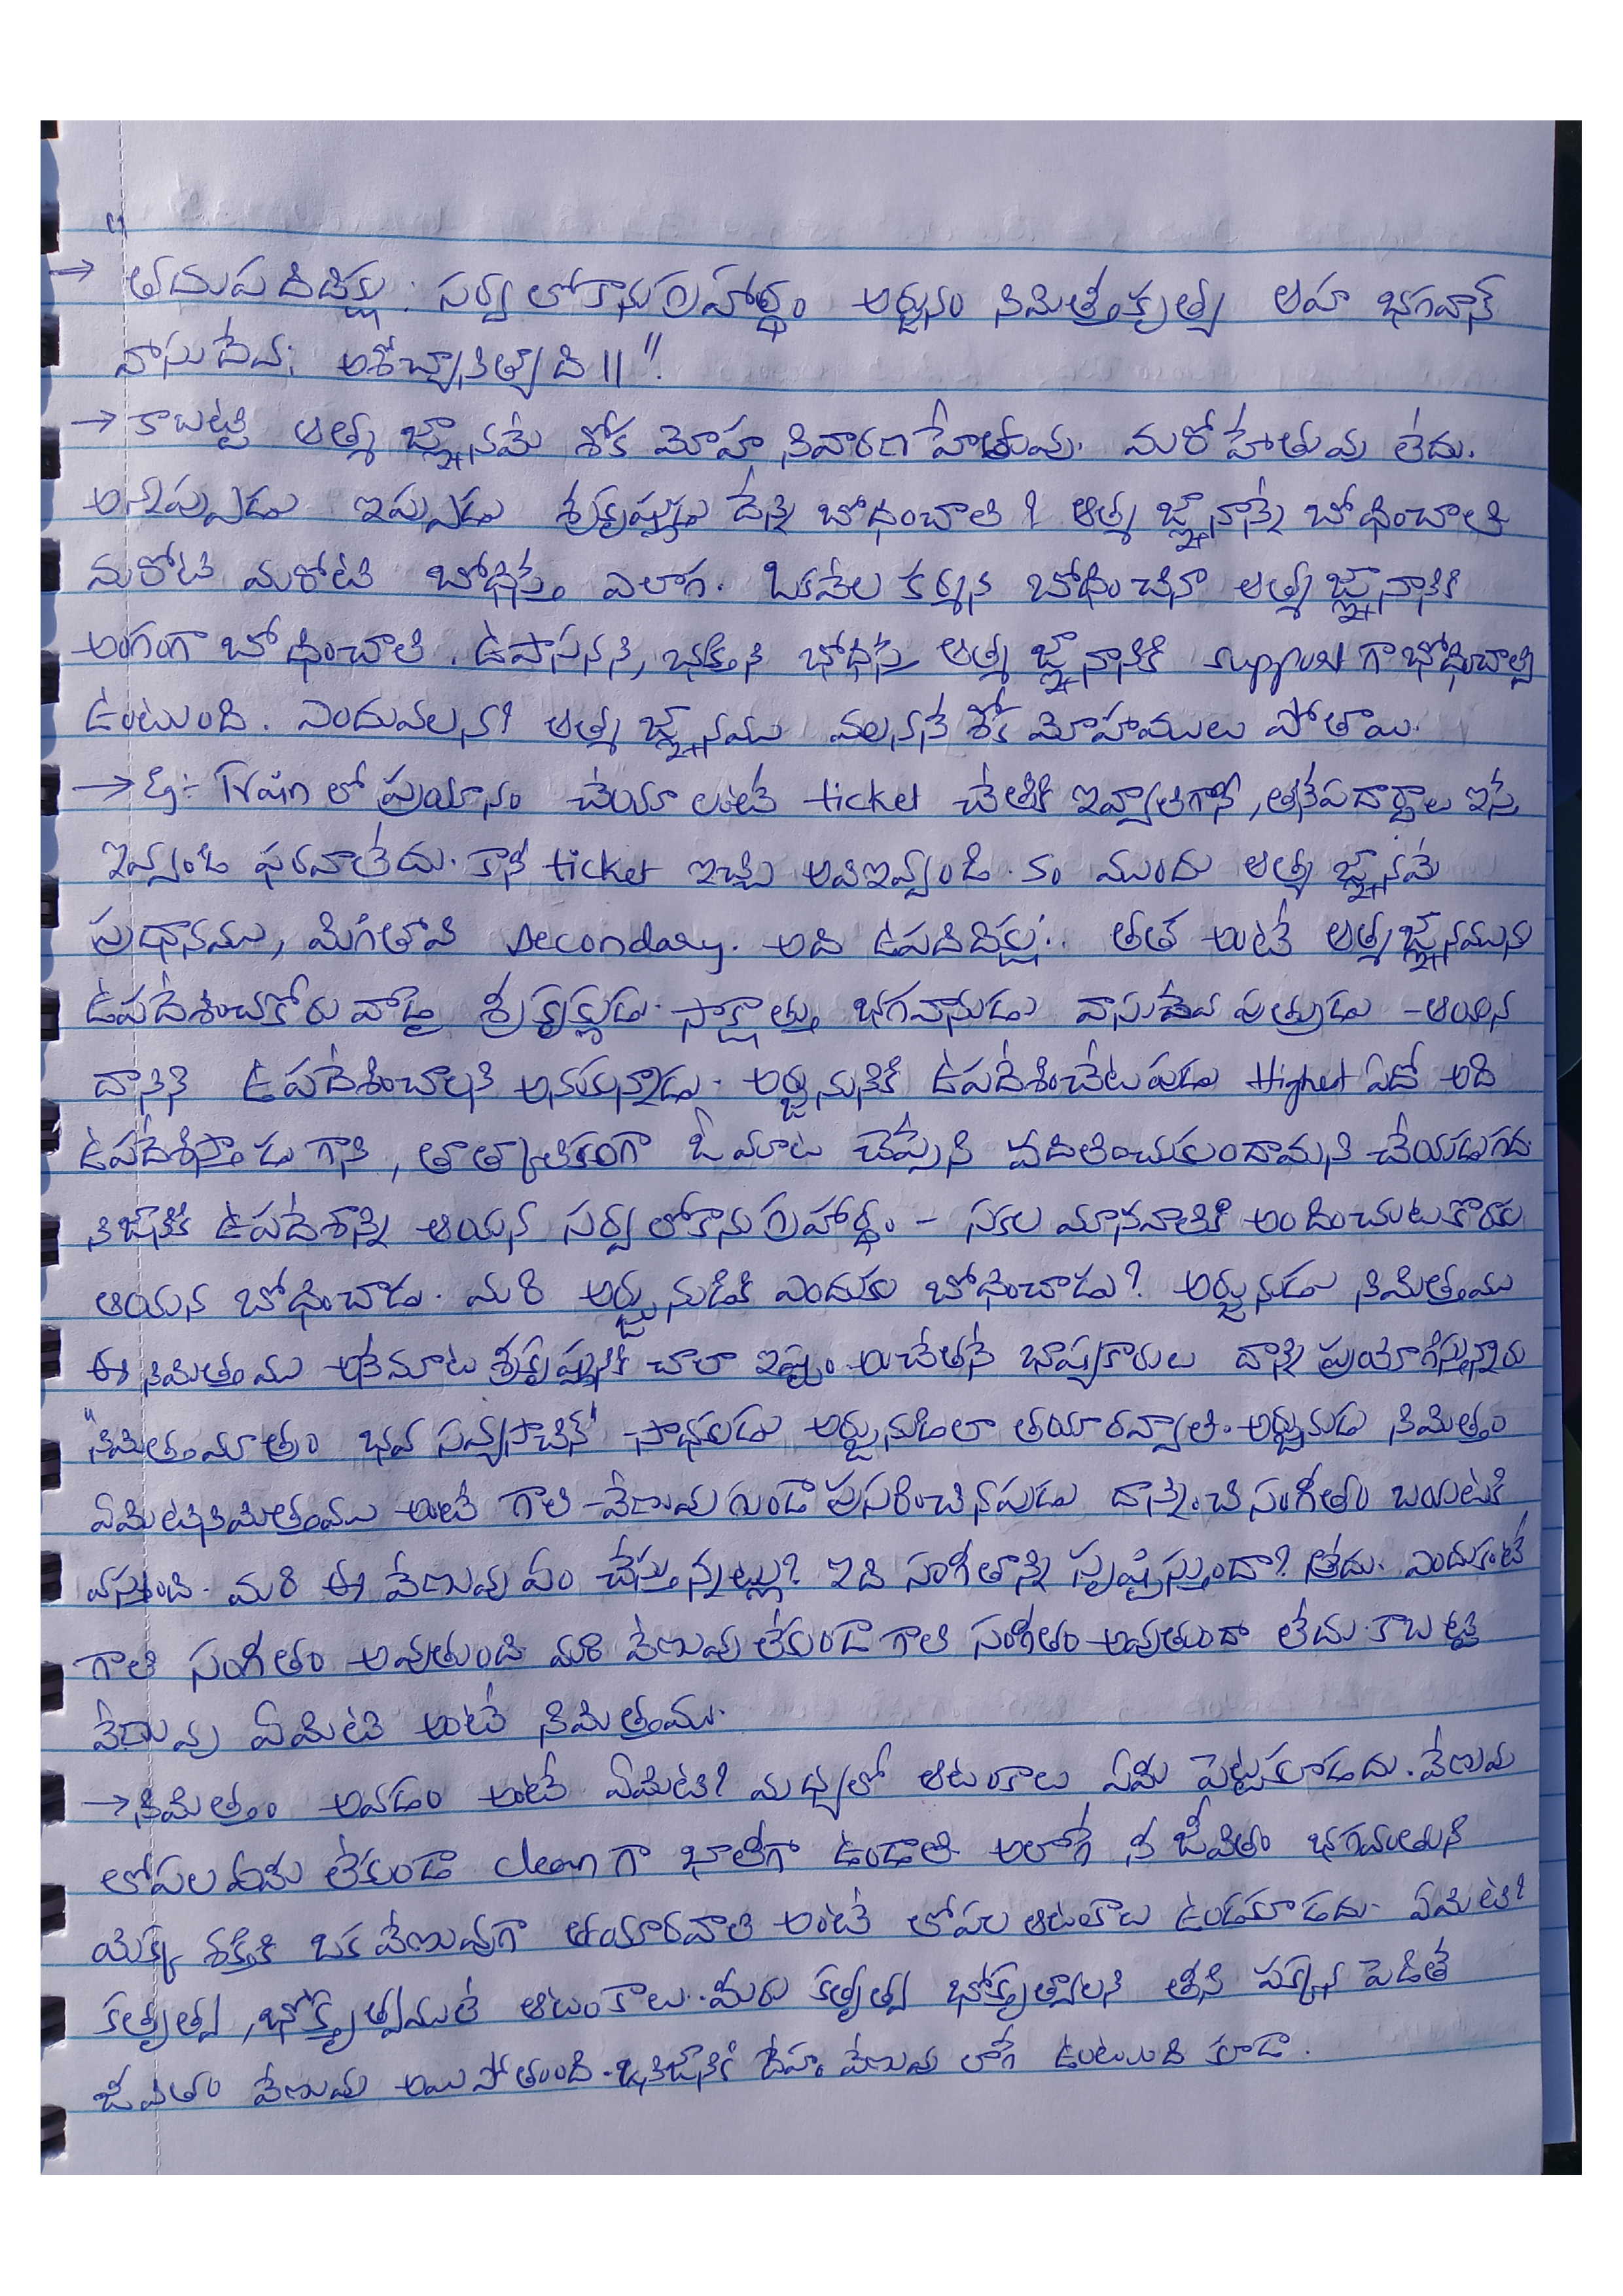 "
→ తదుపదిదిక్షు: సర్వలోకానుగ్రహార్థం అర్జునం నిమిత్తీకృత్య ఆహ భగవాన్
వాసుదేవ: అశోచ్యానిత్యాది ॥ ".
→ కాబట్టి ఆత్మ జ్ఞానమే శోక మోహ నివారణ హేతువు. మరో హేతువు లేదు.
అనిపుడు ఇప్పుడు శ్రీకృష్ణుడు దేన్ని బోధించాలి ? ఆత్మ జ్ఞానాన్నే బోధించాలి
మరోటి మరోటి బోధిస్తే ఎలాగ. ఒకవేల కర్మని బోధించినా ఆత్మజ్ఞానానికి
అంగంగా బోధించాలి. ఉపాసనని, భక్తిని భోధిస్తే ఆత్మ జ్ఞానానికి support గా భోధించాల్సి
ఉంటుంది. ఎందువలన? ఆత్మ జ్ఞానము వలననే శోక మోహములు పోతాయి.
→ Eg:- Train లో ప్రయానం చేయాలంటే ticket చేతికి ఇవ్వాలిగానీ, తినేపదార్థాలు ఇస్తే
ఇవ్వండి ఫరవాలేదు. కానీ ticket ఇచ్చి అవిఇవ్వండి. కం ముందు ఆత్మ జ్ఞానమే
ప్రధానము, మిగిలినవి secondary. అది ఉపదిదిక్షు:. తత అంటే ఆత్మజ్ఞానమును
ఉపదేశించకోరు వాడై శ్రీకృష్ణుడు. సాక్షాత్తు భగవానుడు వాసుదేవ పుత్రుడు - ఆయన
దానిని ఉపదేశించాలని అనుకున్నాడు. అర్జునునికి ఉపదేశించేటపుడు Highest ఏదో అది
ఉపదేశిస్తాడు గాని, తాత్కాలికంగా ఓ మాట చెప్పేసి వదిలించుకుందామని చేయడుగద.
నిజానికి ఉపదేశాన్ని ఆయన సర్వలోకానుగ్రహార్థం - సకల మానవాళికి అందించుటకొరకు
ఆయన బోధించాడు. మరి అర్జునుడికి ఎందుకు బోధించాడు? అర్జునుడు నిమిత్తము
ఈ నిమిత్తము అనేమాట శ్రీకృష్ణునికి చాలా ఇష్టం అచేతనే భాష్యకారులు దాన్ని ప్రయోగిస్తున్నారు
"నిమిత్తమాత్రం భవ సవ్యసాచిన్" సాధకుడు అర్జునుడిలా తయారవ్వాలి. అర్జునుడు నిమిత్తం
ఏమిటినిమిత్తము అంటే గాలి వేణువు గుండా ప్రసరించినపుడు దాన్నించి సంగీతం బయటకి
వస్తుంది. మరి ఈ వేణువు ఏం చేస్తున్నట్లు? ఇది సంగీతాన్ని సృష్టిస్తుందా? లేదు. ఎందుకంటే
గాలి సంగీతం అవుతుంది మరి వేణువు లేకుండా గాలి సంగీతం అవుతుందా లేదు. కాబట్టి
వేణువు ఏమిటి అంటే నిమిత్తము.
→ నిమిత్తం అవడం అంటే ఏమిటి? మధ్యలో ఆటంకాలు ఏమీ పెట్టుకూడదు. వేణువు
లోపల ఏమీ లేకుండా clean గా ఖాళీగా ఉండాలి అలాగే నీ జీవితం భగవంతుని
యొక్క శక్తికి ఒక వేణువుగా తయారవాలి అంటే లోపల ఆటంకాలు ఉండకూడదు. ఏమిటి?
కర్తృత్వ, భోక్తృత్వములే ఆటంకాలు. మీరు కర్తృత్వ భోక్తృత్వాలని తీసి పక్కన పెడితే
జీవితం వేణువు అయిపోతుంది. నిజానికి దేహం వేణువు లాగే ఉంటుంది కూడా.